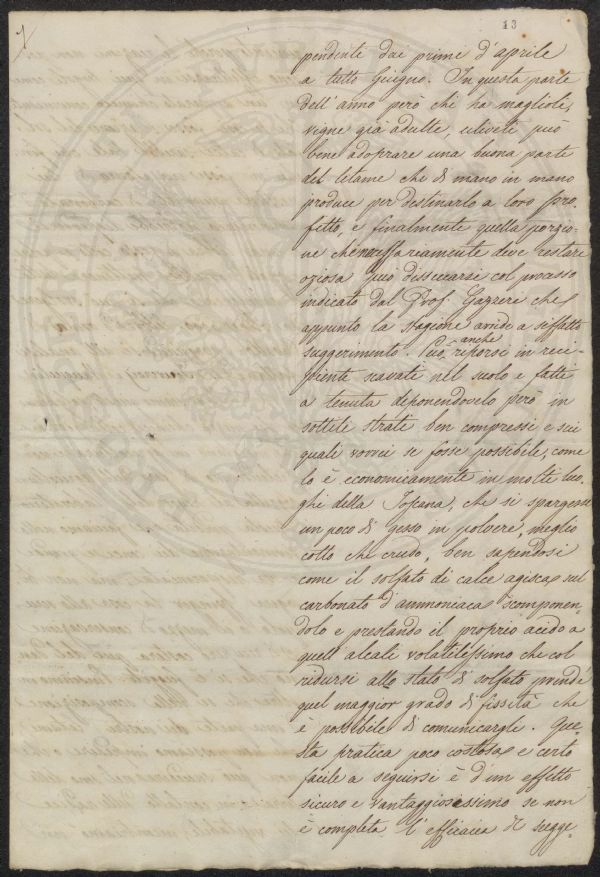 13
pendente dai primi d'aprile
a tutto Giugno. In questa parte
dell'anno però chi ha maglioli,
vigne già adulte, uliveti può
bene adoprare una buona parte
del letame che di mano in mano
produce per destinarlo a loro pro,
fitto, e finalmente quella porzio=
ne che necessariamente deve restare
oziosa può disseccarsi col processo
indicato dal Prof. Gazzeri che
appunto la stagione arride a siffatto
suggerimento. Può anche riporsi in reci-
piente scavati nel suolo e fatti
a tenuta deponendovelo però in
sottili strati ben compressi e sui
quali vorrei se fosse possibile, come
lo è economicamente in molti luo,
ghi della Toscana, che si spargesse
un poco di gesso in polvere, meglio
cotto che crudo, ben sapendosi
come il solfato di calce agisca sul
carbonato d'ammoniaca scomponen,
dolo e prestando il proprio acido a
quell'alcali volatilissimo che col
ridursi allo stato di solfato prende
quel maggior grado di fissità che
è possibile di comunicargli. Que,
sta pratica poco costosa e certo
facile a seguirsi è d'un effetto
sicuro e vantaggiosissimo se non
è completa l'efficacia di sugge,